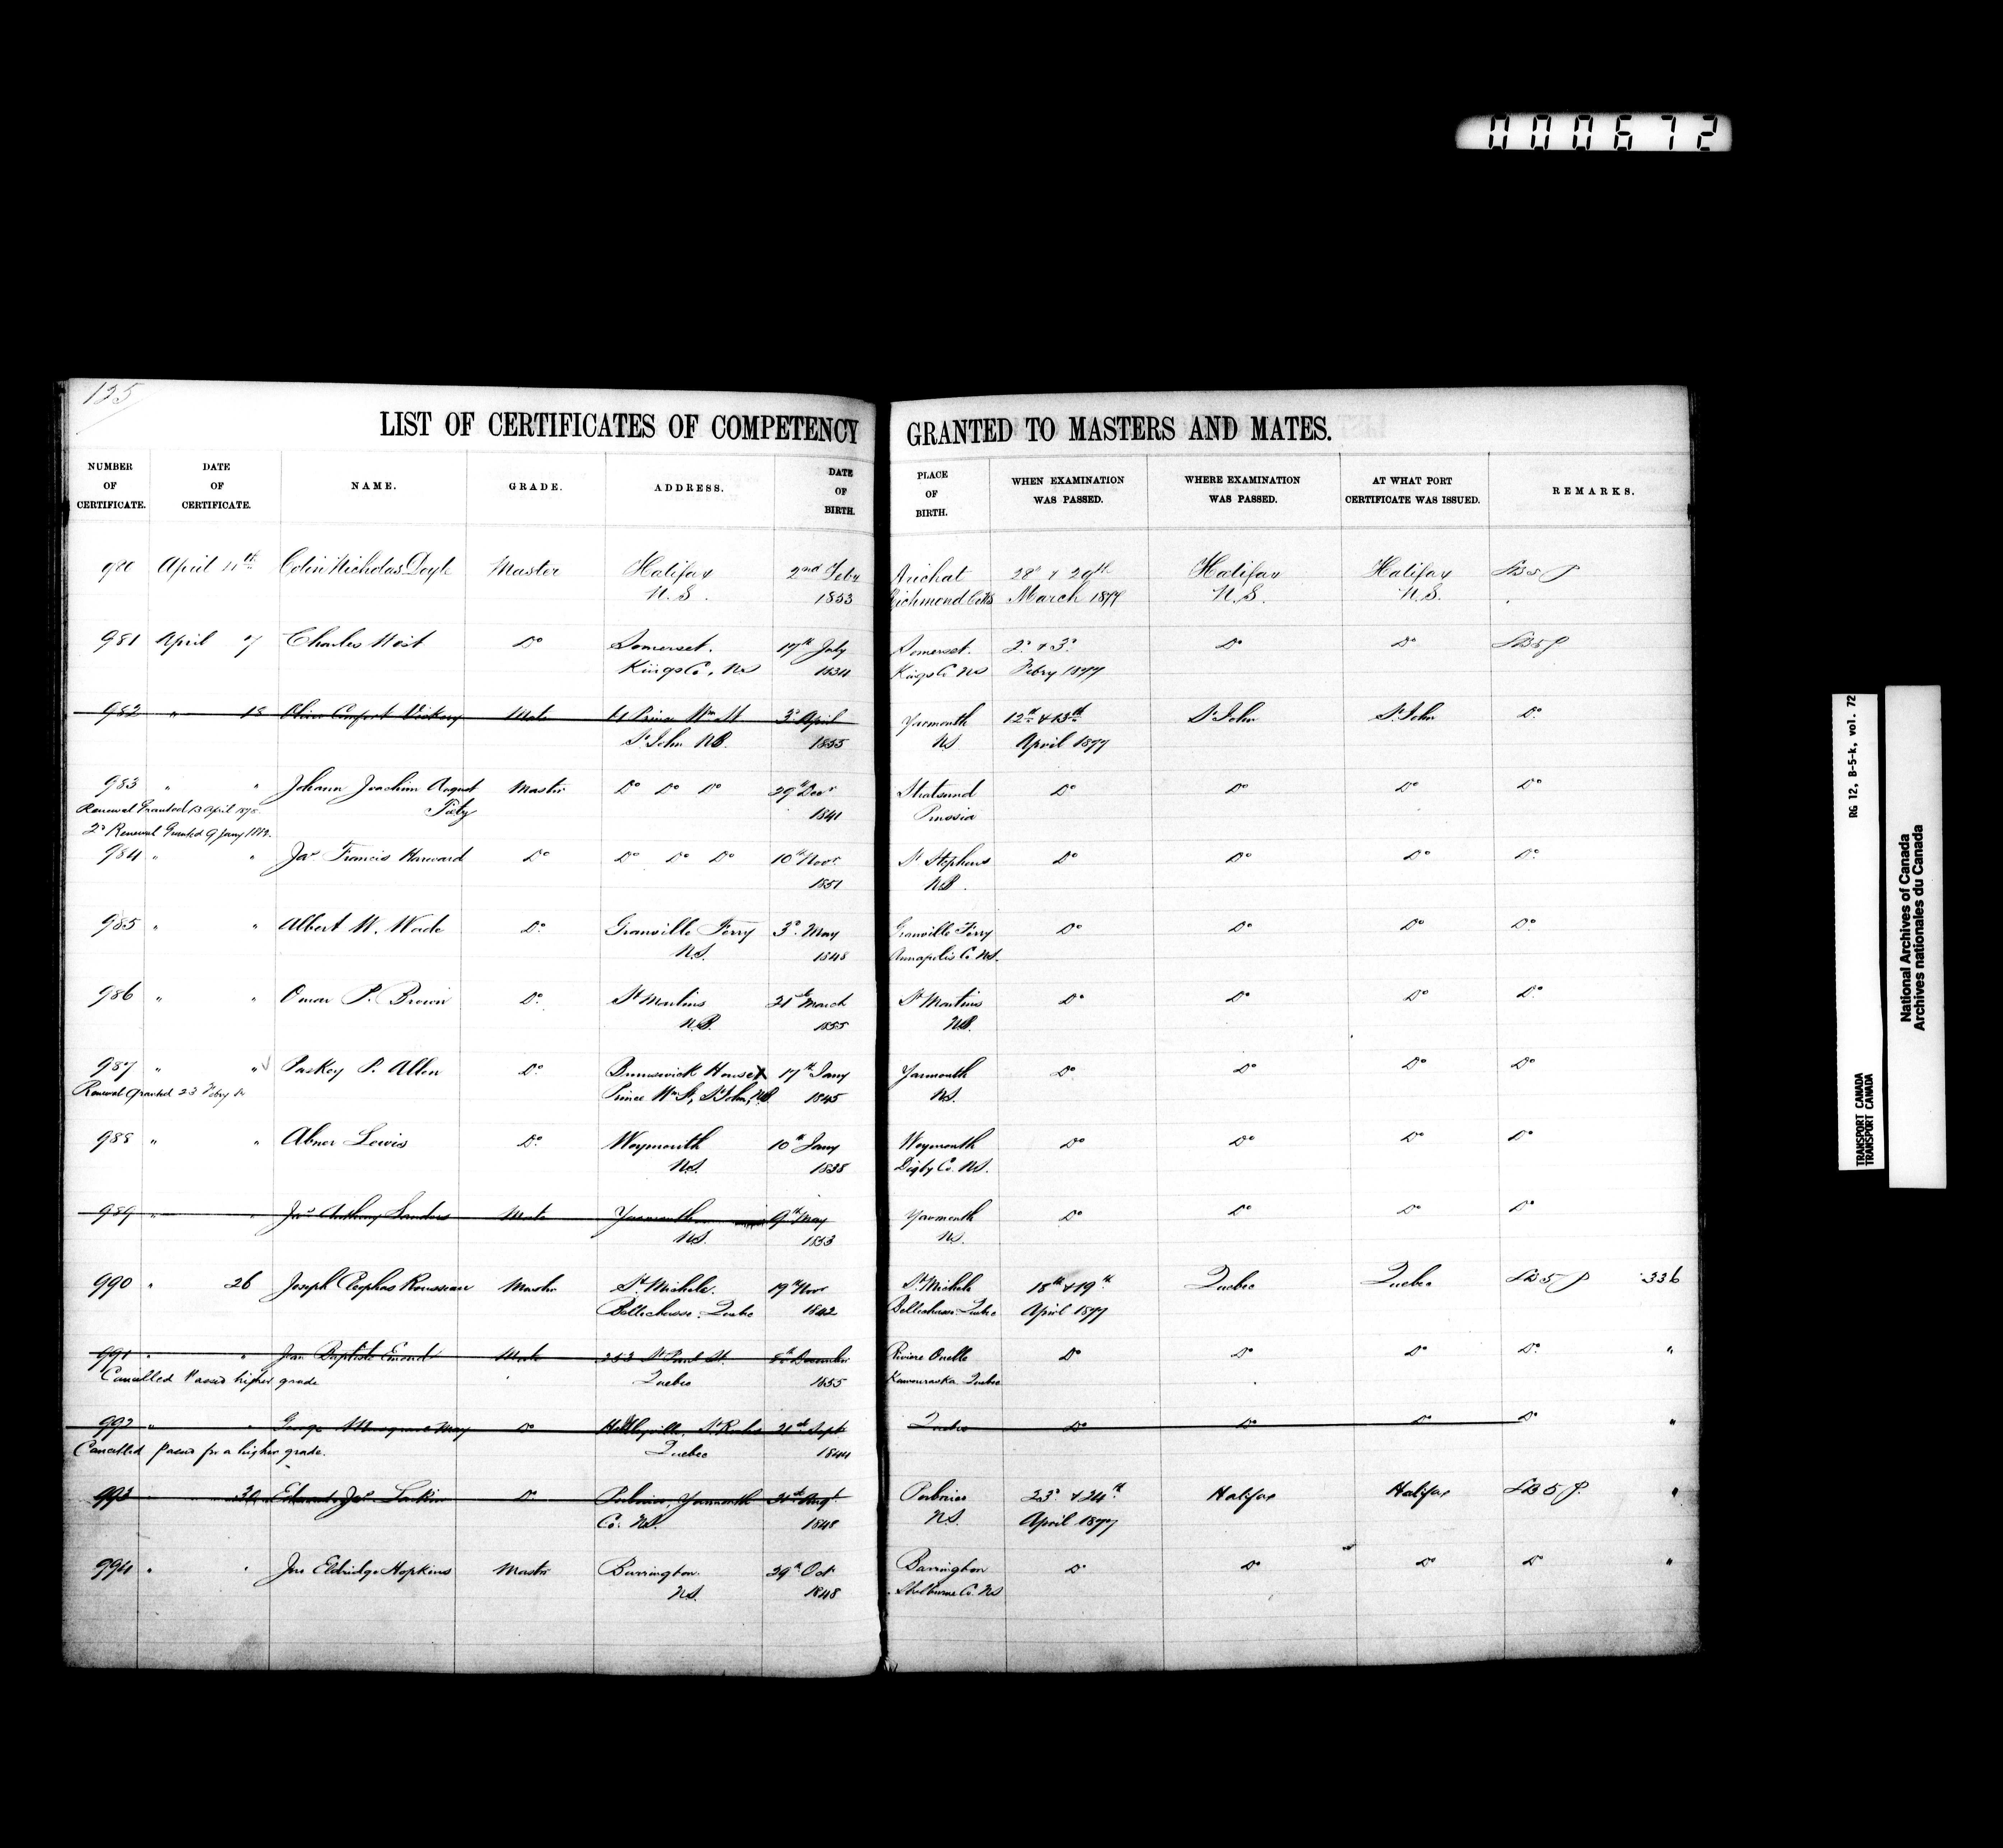 000672
125
LIST OF CERTIFICATES OF COMPETENCY GRANTED TO MASTERS AND MATES.
NUMBER OF CERTIFICATE. DATE OF CERTIFICATE. NAME. GRADE. ADDRESS. DATE OF BIRTH. PLACE OF BIRTH. WHEN EXAMINATION WAS PASSED. WHERE EXAMINATION WAS PASSED. AT WHAT PORT CERTIFICATE WAS ISSUED. REMARKS.
980 April 11th Colin Nicholas Doyle Master Halifax 2nd Feby Arichat 28th & 29th Halifax Halifax
N.S. 1853 Richmond Co NS March 1877 N.S. N.S.
981 April 7 Charles West Do Somerset. 17th July Somerset. 2d & 3d Do Do
Kings Co, NS 1834 Kings Co NS Feby 1877
982 " 18 Oliver Comfort Vickery Mate Prince Wm St 3d April Yarmouth 12th & 13th St John St John Do
St John NB. 1855 NS April 1877
983 " " Johann Joachim August Master Do Do Do 29th Decr Stralsund Do Do Do Do
Renewal Granted 13 April 1878 1841 Prussia
2d Renewal Granted 9 Jany 1882.
984 " " Jas Francis Harward Do Do Do Do 10th Novr St Stephens Do Do Do Do
1851 NB.
985 " " Albert W. Wade Do Granville Ferry 3d May Granville Ferry Do Do Do Do
N.S. 1848 Annapolis Co. NS.
986 " " Omar P. Brown Do St Martins 21st March St Martins Do Do Do Do
N.B. 1855 NB.
987 " " Paskey P. Allen Do Brunswick House X 17th Jany Yarmouth Do Do Do Do
Renewal granted 23 Feby Prince Wm St, St John, NB. 1845 NS.
988 " " Abner Lewis Do Weymouth 10th Jany Weymouth Do Do Do Do
NS. 1838 Digby Co. NS.
989 " " Jas Anthony Sanders Mate Yarmouth 9th May Yarmouth Do Do Do Do
NS. 1853 NS.
990 " 26 Joseph Cleophas Rousseau Master St Michels. 19th Novr St Michels 18th & 19th Quebec Quebec 336
Bellechasse. Quebec 1842 Bellechasse Quebec April 1877
991 " " Jean Baptiste Emond Mate 253 St Paul St. 8th December Riviere Ouelle Do Do Do Do "
Cancelled Passed higher grade Quebec 1855 Kamouraska Quebec
992 " " George Musgrave May Do Hedleyville, St Rochs 21st Sept Quebec Do Do Do Do "
Cancelled passed for a higher grade. Quebec 1844
993 " 30 Edward Jas Larkin Do Pubnico, Yarmouth 21st Augt Pubnico 23d & 24th Halifax Halifax "
Co. NS. 1848 N.S. April 1877
994 " " Jno Eldridge Hopkins Master Barrington. 29th Oct Barrington Do Do Do Do "
NS. 1848 Shelburne Co. NS
RG 12, B-5-k, vol. 72
TRANSPORT CANADA
TRANSPORT CANADA
National Archives of Canada
Archives nationales du Canada